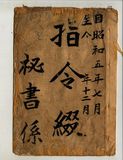 自昭和五年七月
至仝 年十二月
指令綴
秘書係